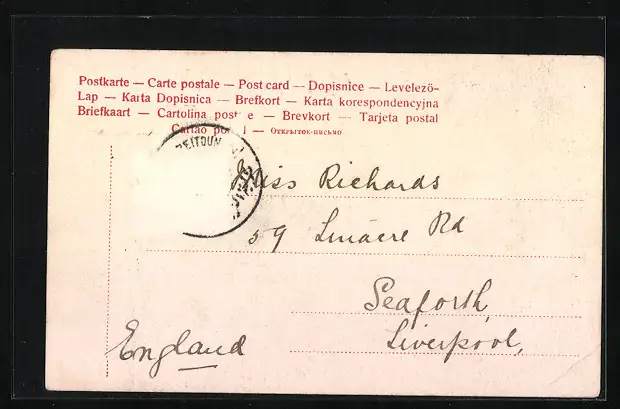 Postkarte — Carte postale — Post card — Dopisnice — Levelező-
Lap — Karta Dopisnica — Brefkort — Karta korespondencyjna
Briefkaart — Cartolina post e — Brevkort — Tarjeta postal
Cartão po l — Открытое-письмо
ZEITOUN
Miss Richards
59 Linacre Rd
Seaforth,
Liverpool,
England